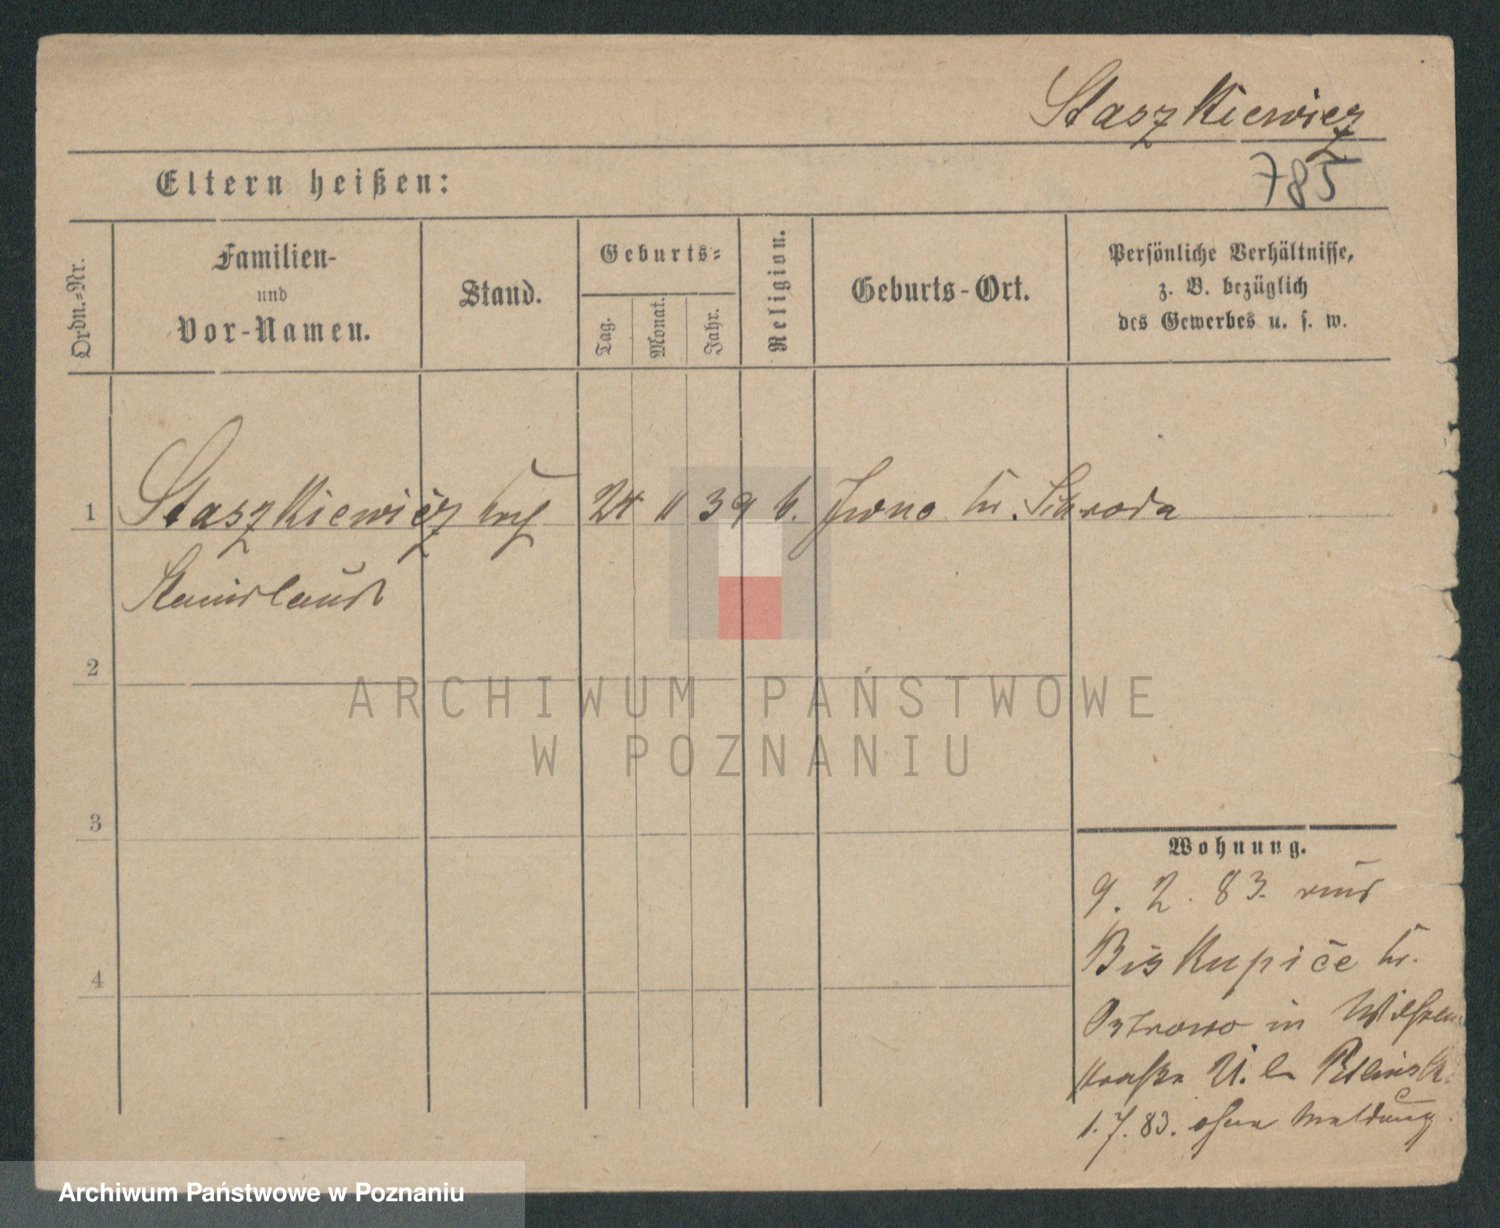 Staszkiewicz
Eltern heißen:
785
Ordn.=Nr.
Familien-
und
Vor-Namen.
Stand.
Geburts=
Tag.
Monat.
Jahr.
Religion.
Geburts-Ort.
Persönliche Verhältnisse,
z. B. bezüglich
des Gewerbes u. s. w.
1 Staszkiewicz 24 11 39 k. Iwno Kr. Schroda
Stanislaus
2
3
4
ARCHIWUM PAŃSTWOWE
W POZNANIU
Wohnung.
9. 2. 83. aus
Biskupice Kr.
Ostrowo in
straße
1. 7. 83. ohne Meldung
Archiwum Państwowe w Poznaniu